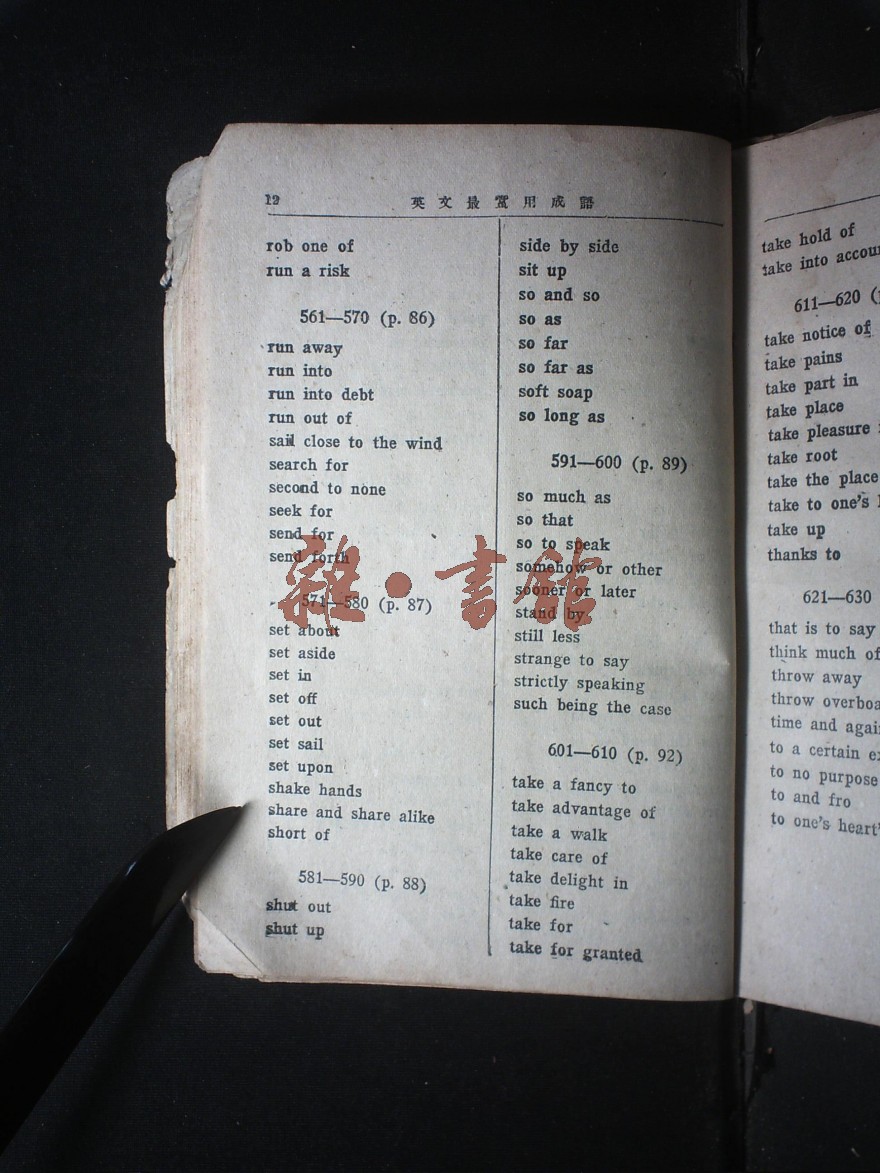 12
英文最實用成語
rob one of
run a risk
561—570 (p. 86)
run away
run into
run into debt
run out of
sail close to the wind
search for
second to none
seek for
send for
send forth
571—580 (p. 87)
set about
set aside
set in
set off
set out
set sail
set upon
shake hands
share and share alike
short of
581—590 (p. 88)
shut out
shut up
side by side
sit up
so and so
so as
so far
so far as
soft soap
so long as
591—600 (p. 89)
so much as
so that
so to speak
somehow or other
sooner or later
stand by
still less
strange to say
strictly speaking
such being the case
601—610 (p. 92)
take a fancy to
take advantage of
take a walk
take care of
take delight in
take fire
take for
take for granted
雜·書館
take hold of
take into accou
611—620 (
take notice of
take pains
take part in
take place
take pleasure
take root
take the place
take to one's
take up
thanks to
621—630
that is to say
think much of
throw away
throw overboa
time and agai
to a certain
to no purpose
to and fro
to one's heart'